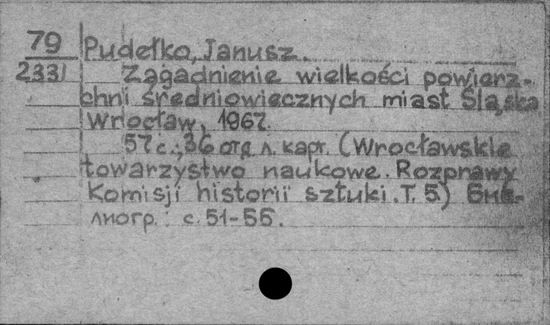 79 Pudełko, Janusz.
2331 Zagadnienie wielkości powierz-
chni średniowiecznych miast Śląska
Wrocław, 1967.
57 с.; 36 отд. л. карт. (Wrocławskie
towarzystwo naukowe. Rozprawy
Komisji historii sztuki. T. 5.) Биб-
лиогр.: с. 51-55.